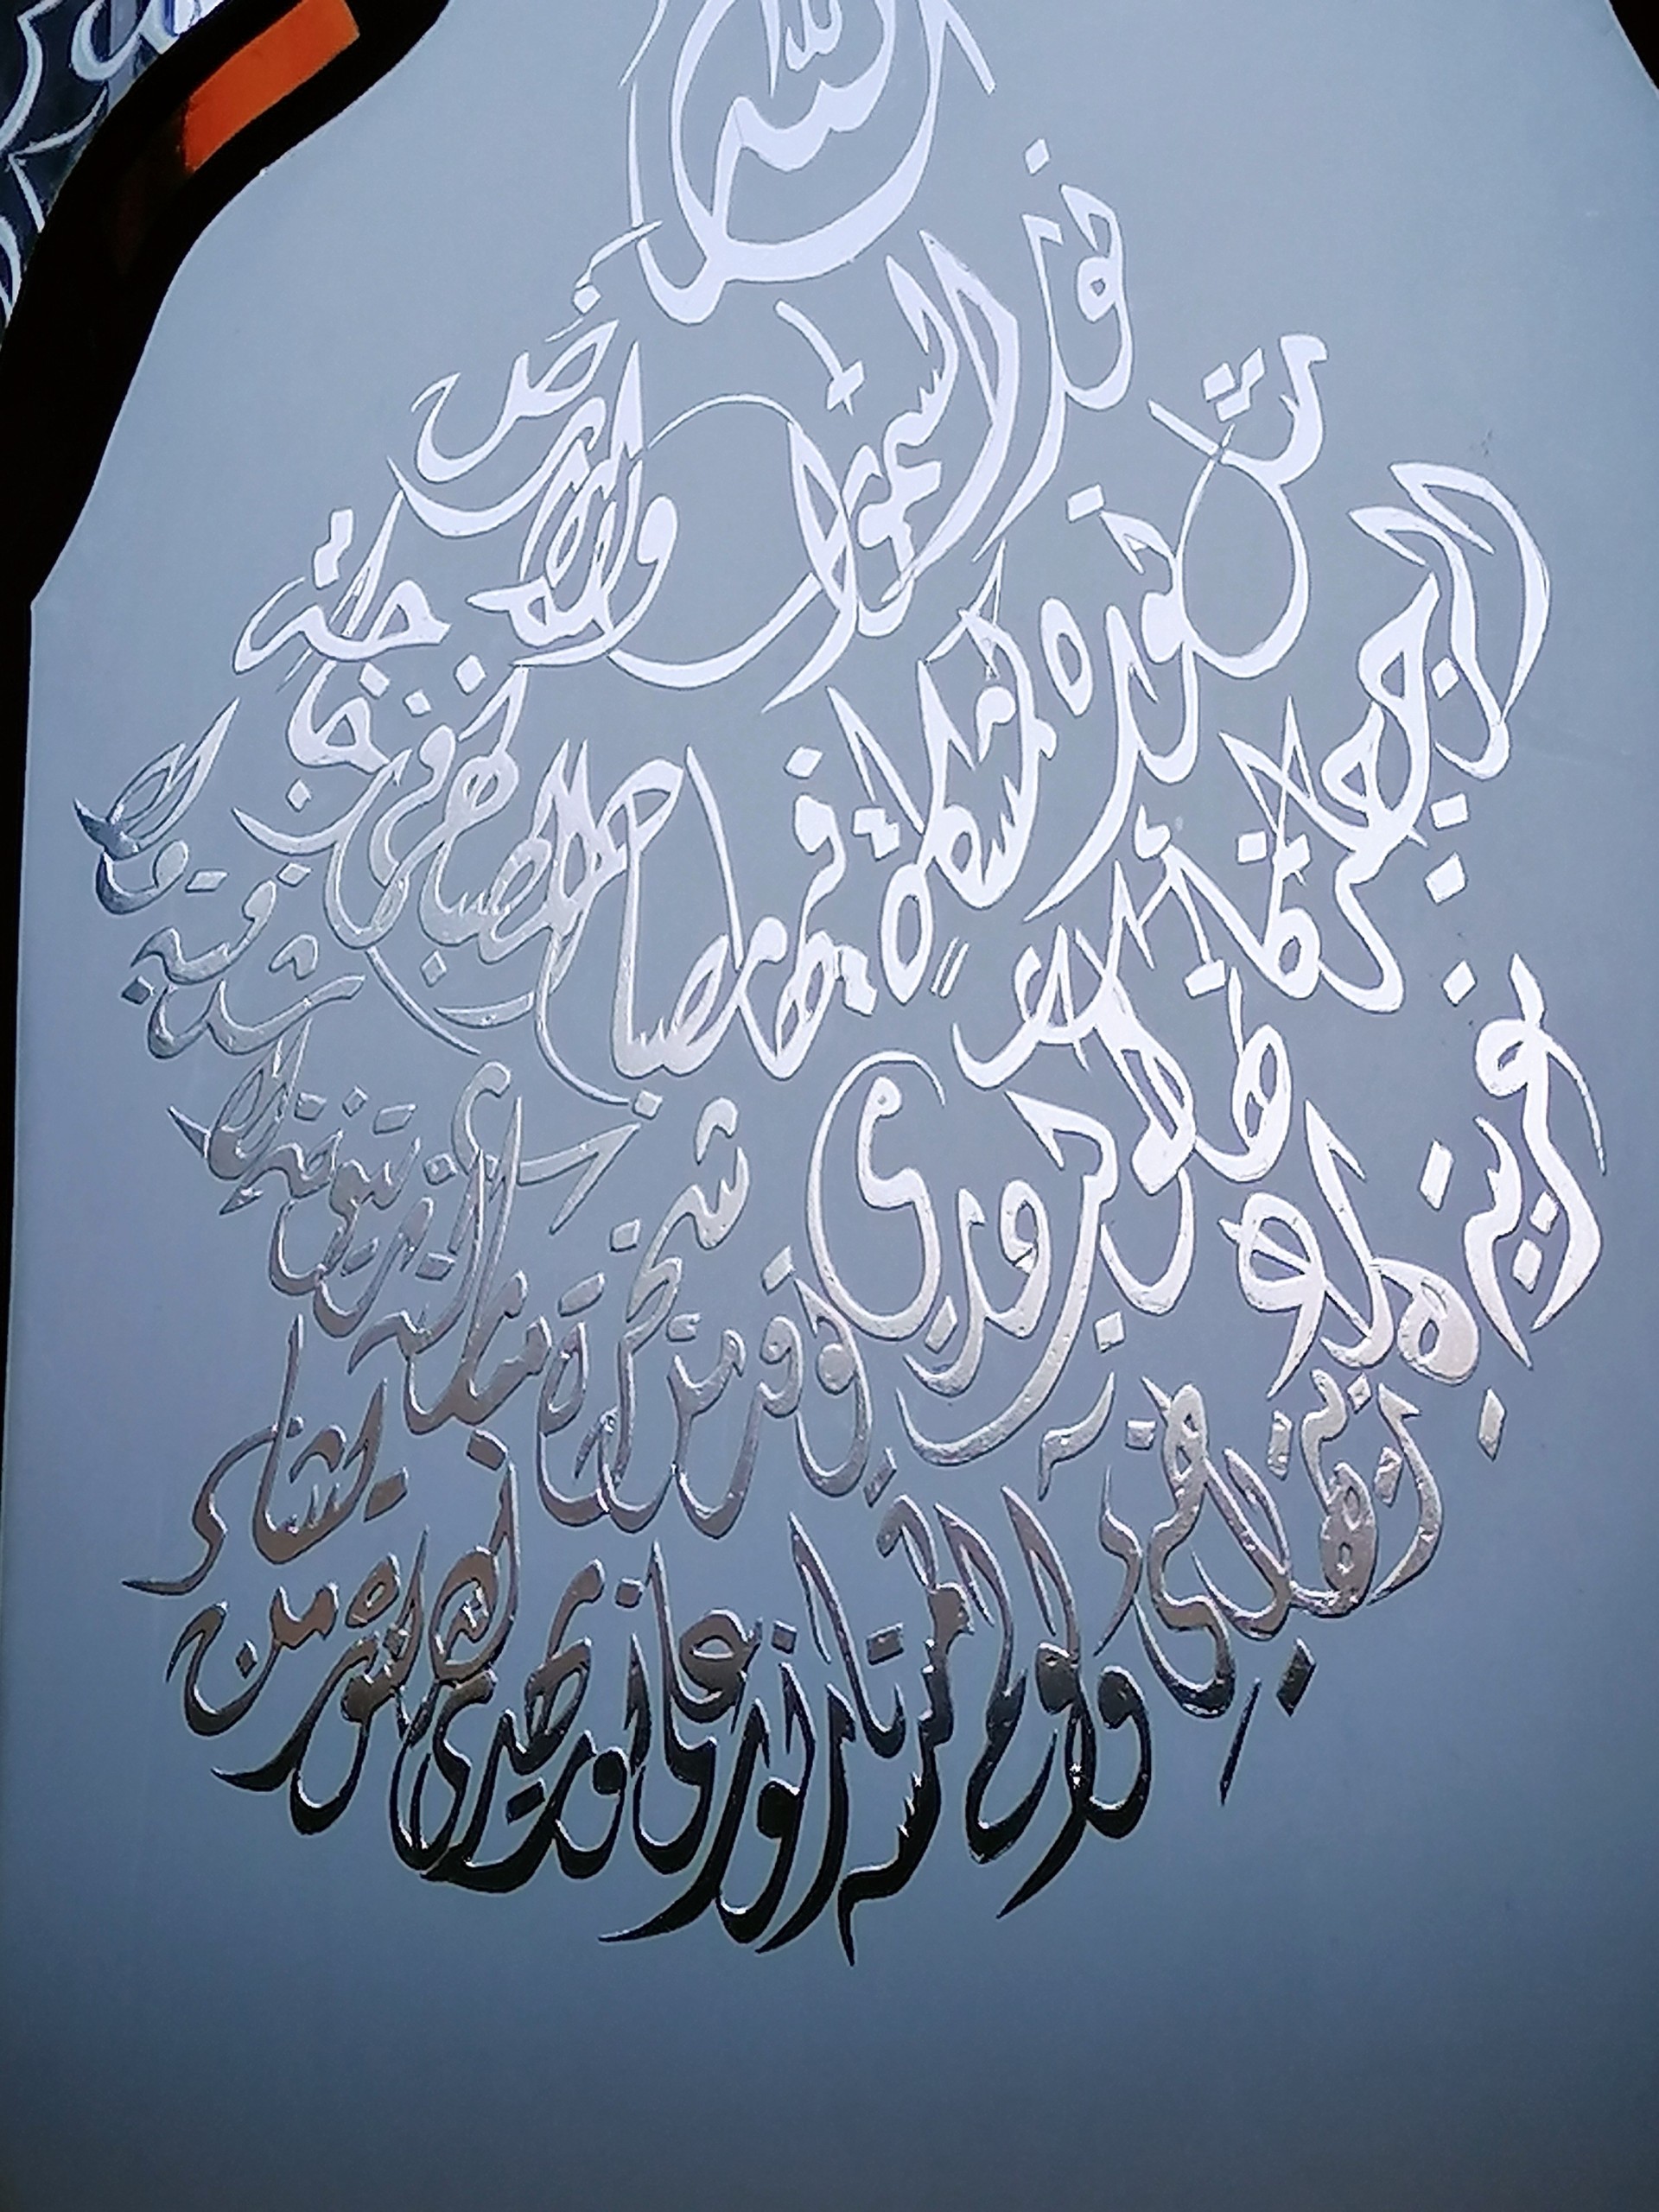 الله
نور السموات والارض
مثل نوره كمشكاة فيها مصباح المصباح في زجاجة
الزجاجة كانها كوكب دري يوقد من شجرة مباركة زيتونة لا شرقية
ولا غربية يكاد زيتها يضيء
ولو لم تمسسه نار نور على نور يهدي الله لنوره من يشاء